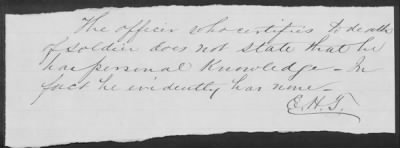 The officer who certifies to death
of soldier does not state that he
has personal knowledge - In
fact he evidently has none -
E.H.G.